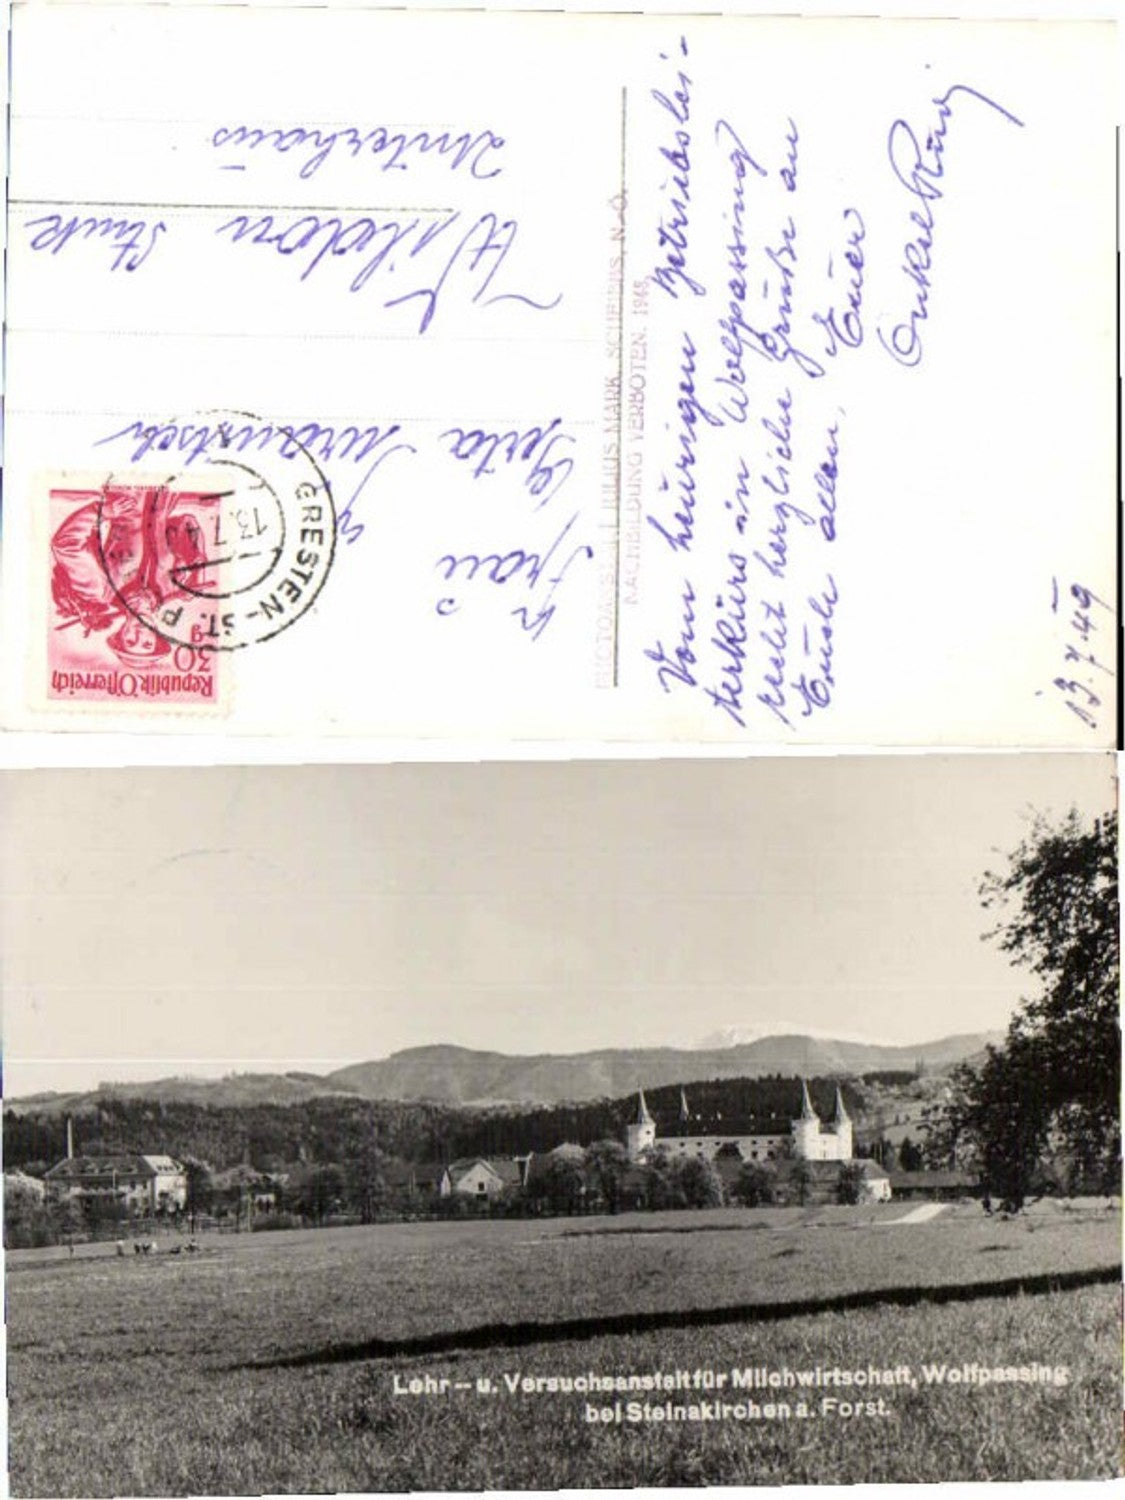 Vom heurigen Betriebslei-
terkurs in Wolfpassing
recht herzliche Grüße an
Euch allen,
Euer
Onkel Rudi
13.7.49
PHOTOANSTALT JULIUS MARK, SCHEIBBS, N.-Ö.
NACHBILDUNG VERBOTEN. 1948
Frau
Gerta
Wildon Stmk
Unterhaus
Republik Österreich
30 g
GRESTEN-ST. P
13.7.49
Lehr – u. Versuchsanstalt für Milchwirtschaft, Wolfpassing
bei Steinakirchen a. Forst.